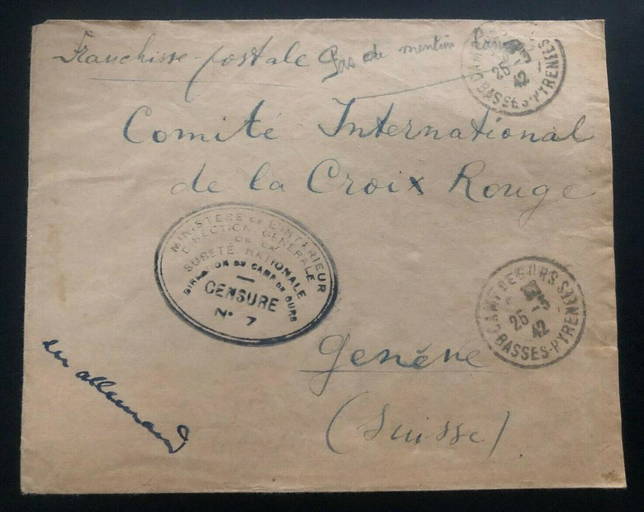 Franchise postale Pas de mention
CAMP DE GURS
25
42
BASSES-PYRENEES
Comité International
de la Croix Rouge
MINISTERE DE L'INTERIEUR
DIRECTION GENERALE
DE LA
SURETE NATIONALE
DIRECTION DU CAMP DE GURS
CENSURE
N° 7
CAMP DE GURS
25
42
BASSES-PYRENEES
Genève
(Suisse)
en allemand